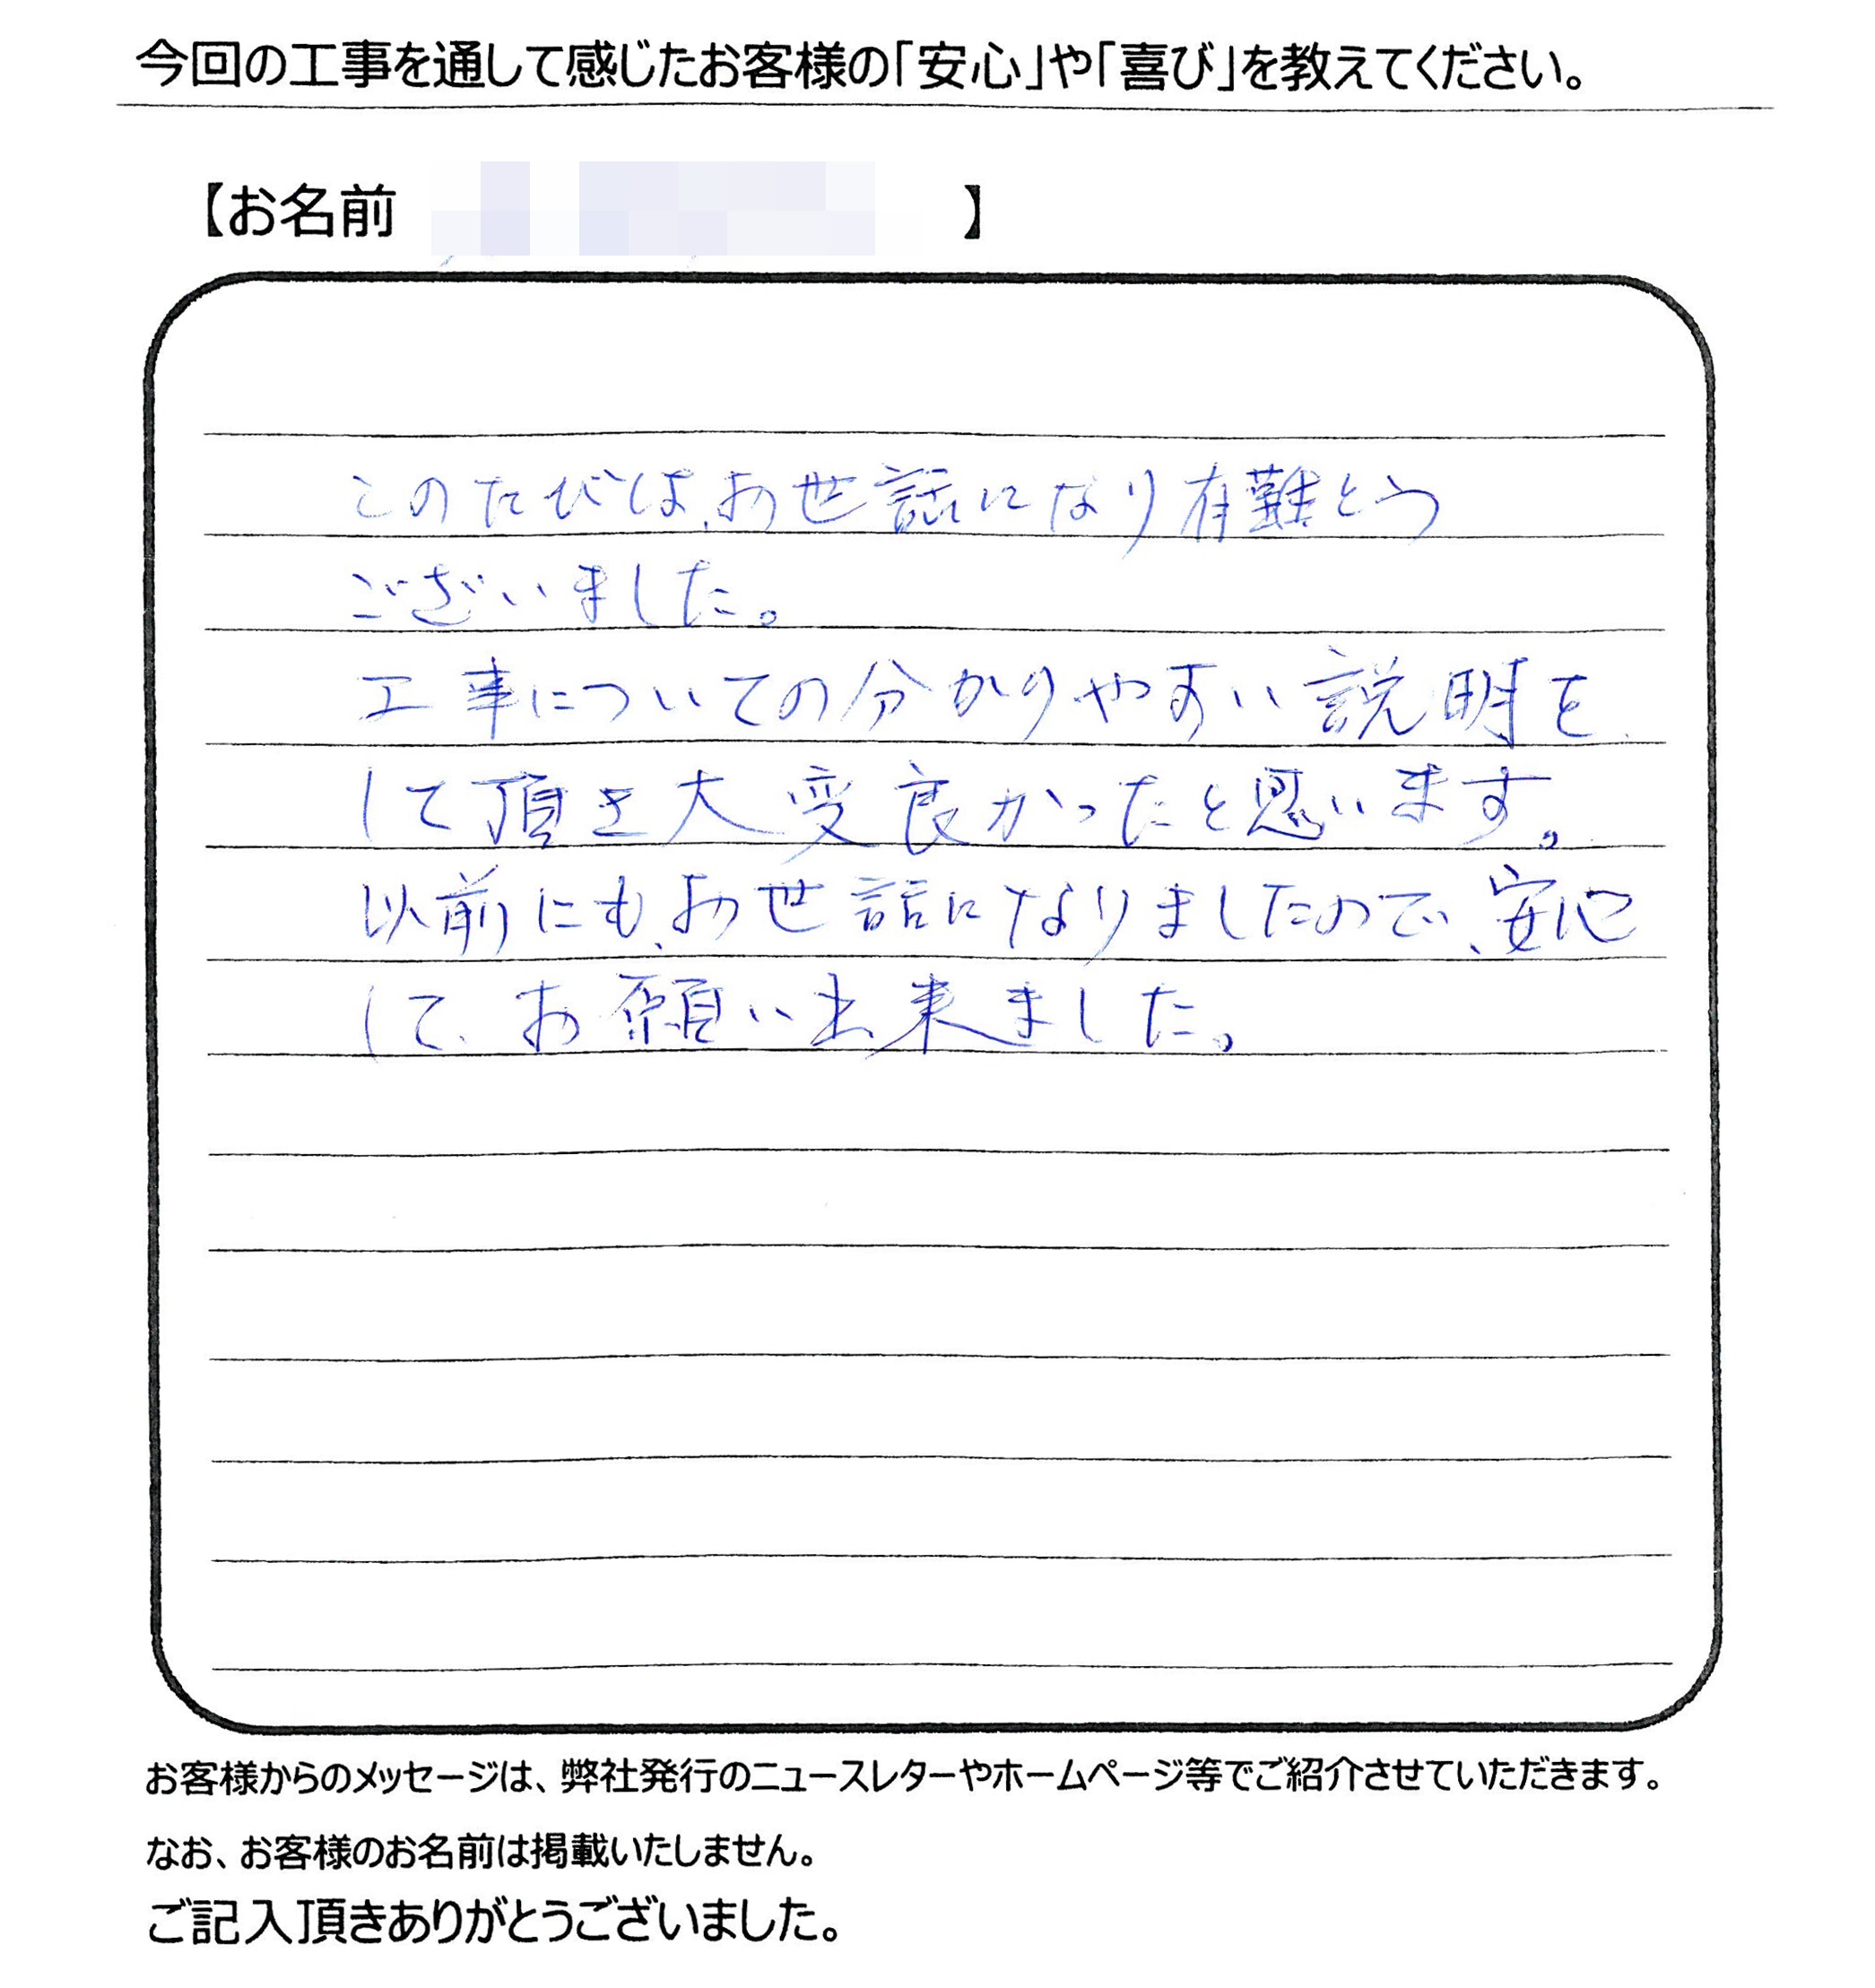 今回の工事を通して感じたお客様の「安心」や「喜び」を教えてください。
【お名前 】
このたびは、お世話になり有難とう
ございました。
工事についての分かりやすい説明を
して頂き大変良かったと思います。
以前にも、お世話になりましたので、安心
して、お願い出来ました。
お客様からのメッセージは、弊社発行のニュースレターやホームページ等でご紹介させていただきます。
なお、お客様のお名前は掲載いたしません。
ご記入頂きありがとうございました。